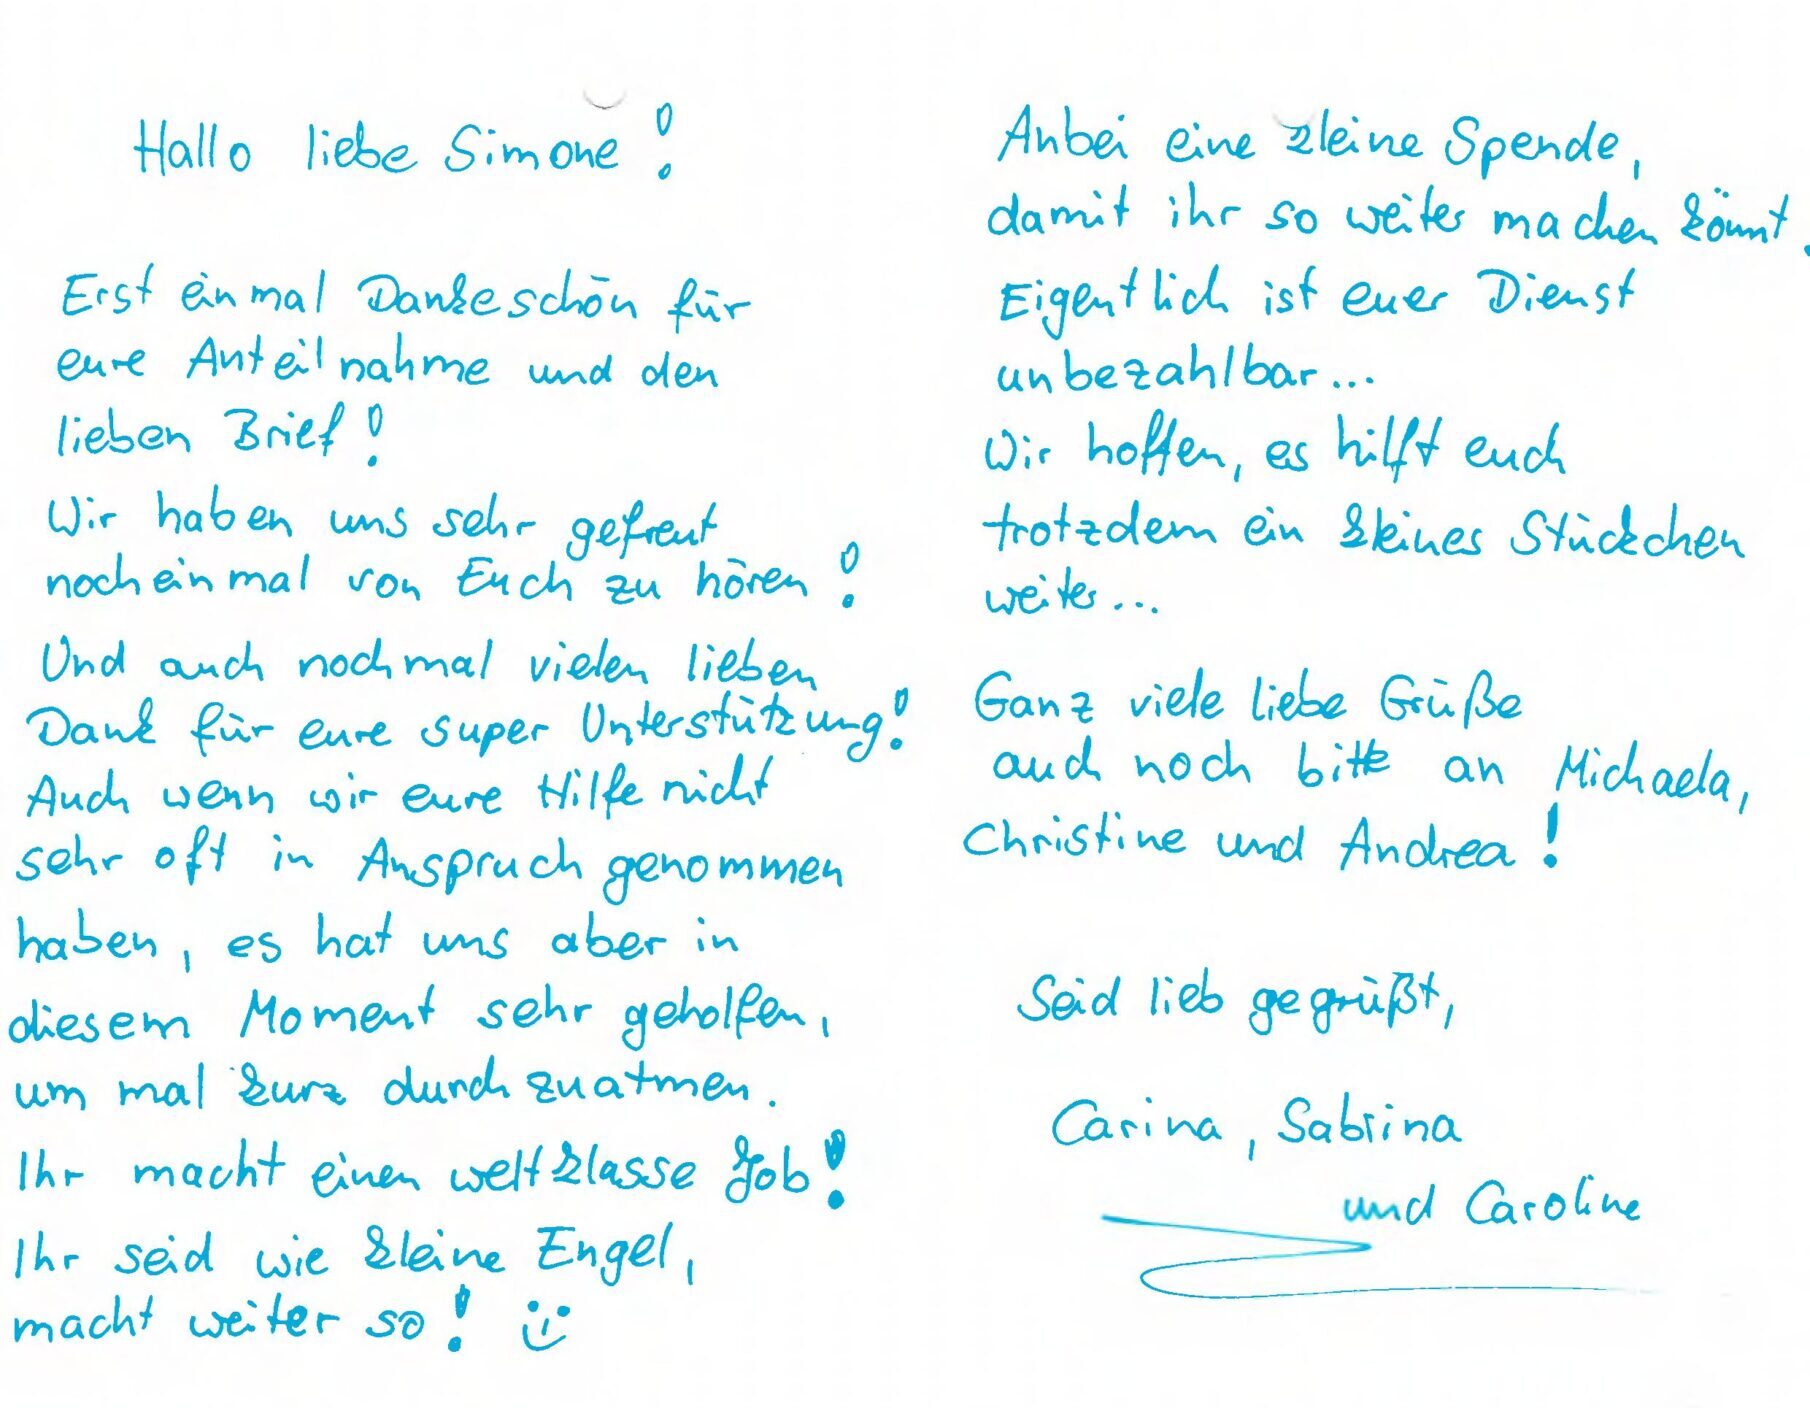 Hallo liebe Simone!
Erst einmal Dankeschön für
eure Anteilnahme und den
lieben Brief!
Wir haben uns sehr gefreut
nocheinmal von Euch zu hören!
Und auch nochmal vielen lieben
Dank für eure super Unterstützung!
Auch wenn wir eure Hilfe nicht
sehr oft in Anspruch genommen
haben, es hat uns aber in
diesem Moment sehr geholfen,
um mal kurz durchzuatmen.
Ihr macht einen weltklasse Job!
Ihr seid wie kleine Engel,
macht weiter so!
Anbei eine kleine Spende,
damit ihr so weiter machen könnt.
Eigentlich ist euer Dienst
unbezahlbar...
Wir hoffen, es hilft euch
trotzdem ein kleines Stückchen
weiter...
Ganz viele liebe Grüße
auch noch bitte an Michaela,
Christine und Andrea!
Seid lieb gegrüßt,
Carina, Sabrina
und Caroline